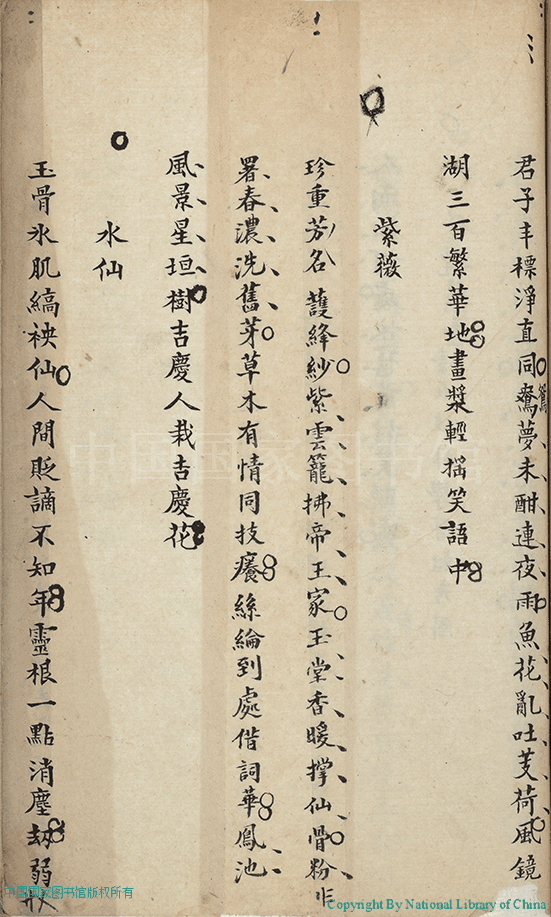 君子丰標淨直同鴦夢未酣連夜雨魚花亂吐芰荷風鏡
鴛
湖三百繁華地畫漿輕摇笑語中
紫薇
珍重芳名護絳紗紫雲籠拂帝王家玉堂香暖撑仙骨粉
署春濃洗舊芽草木有情同技癢絲綸到處偕詞華鳳池
風景星垣樹吉慶人栽吉慶花
水仙
玉骨氷肌縞袂仙人間貶謫不知年靈根一點消塵劫弱
中国国家图书馆版权所有
Copyright By National Library of China